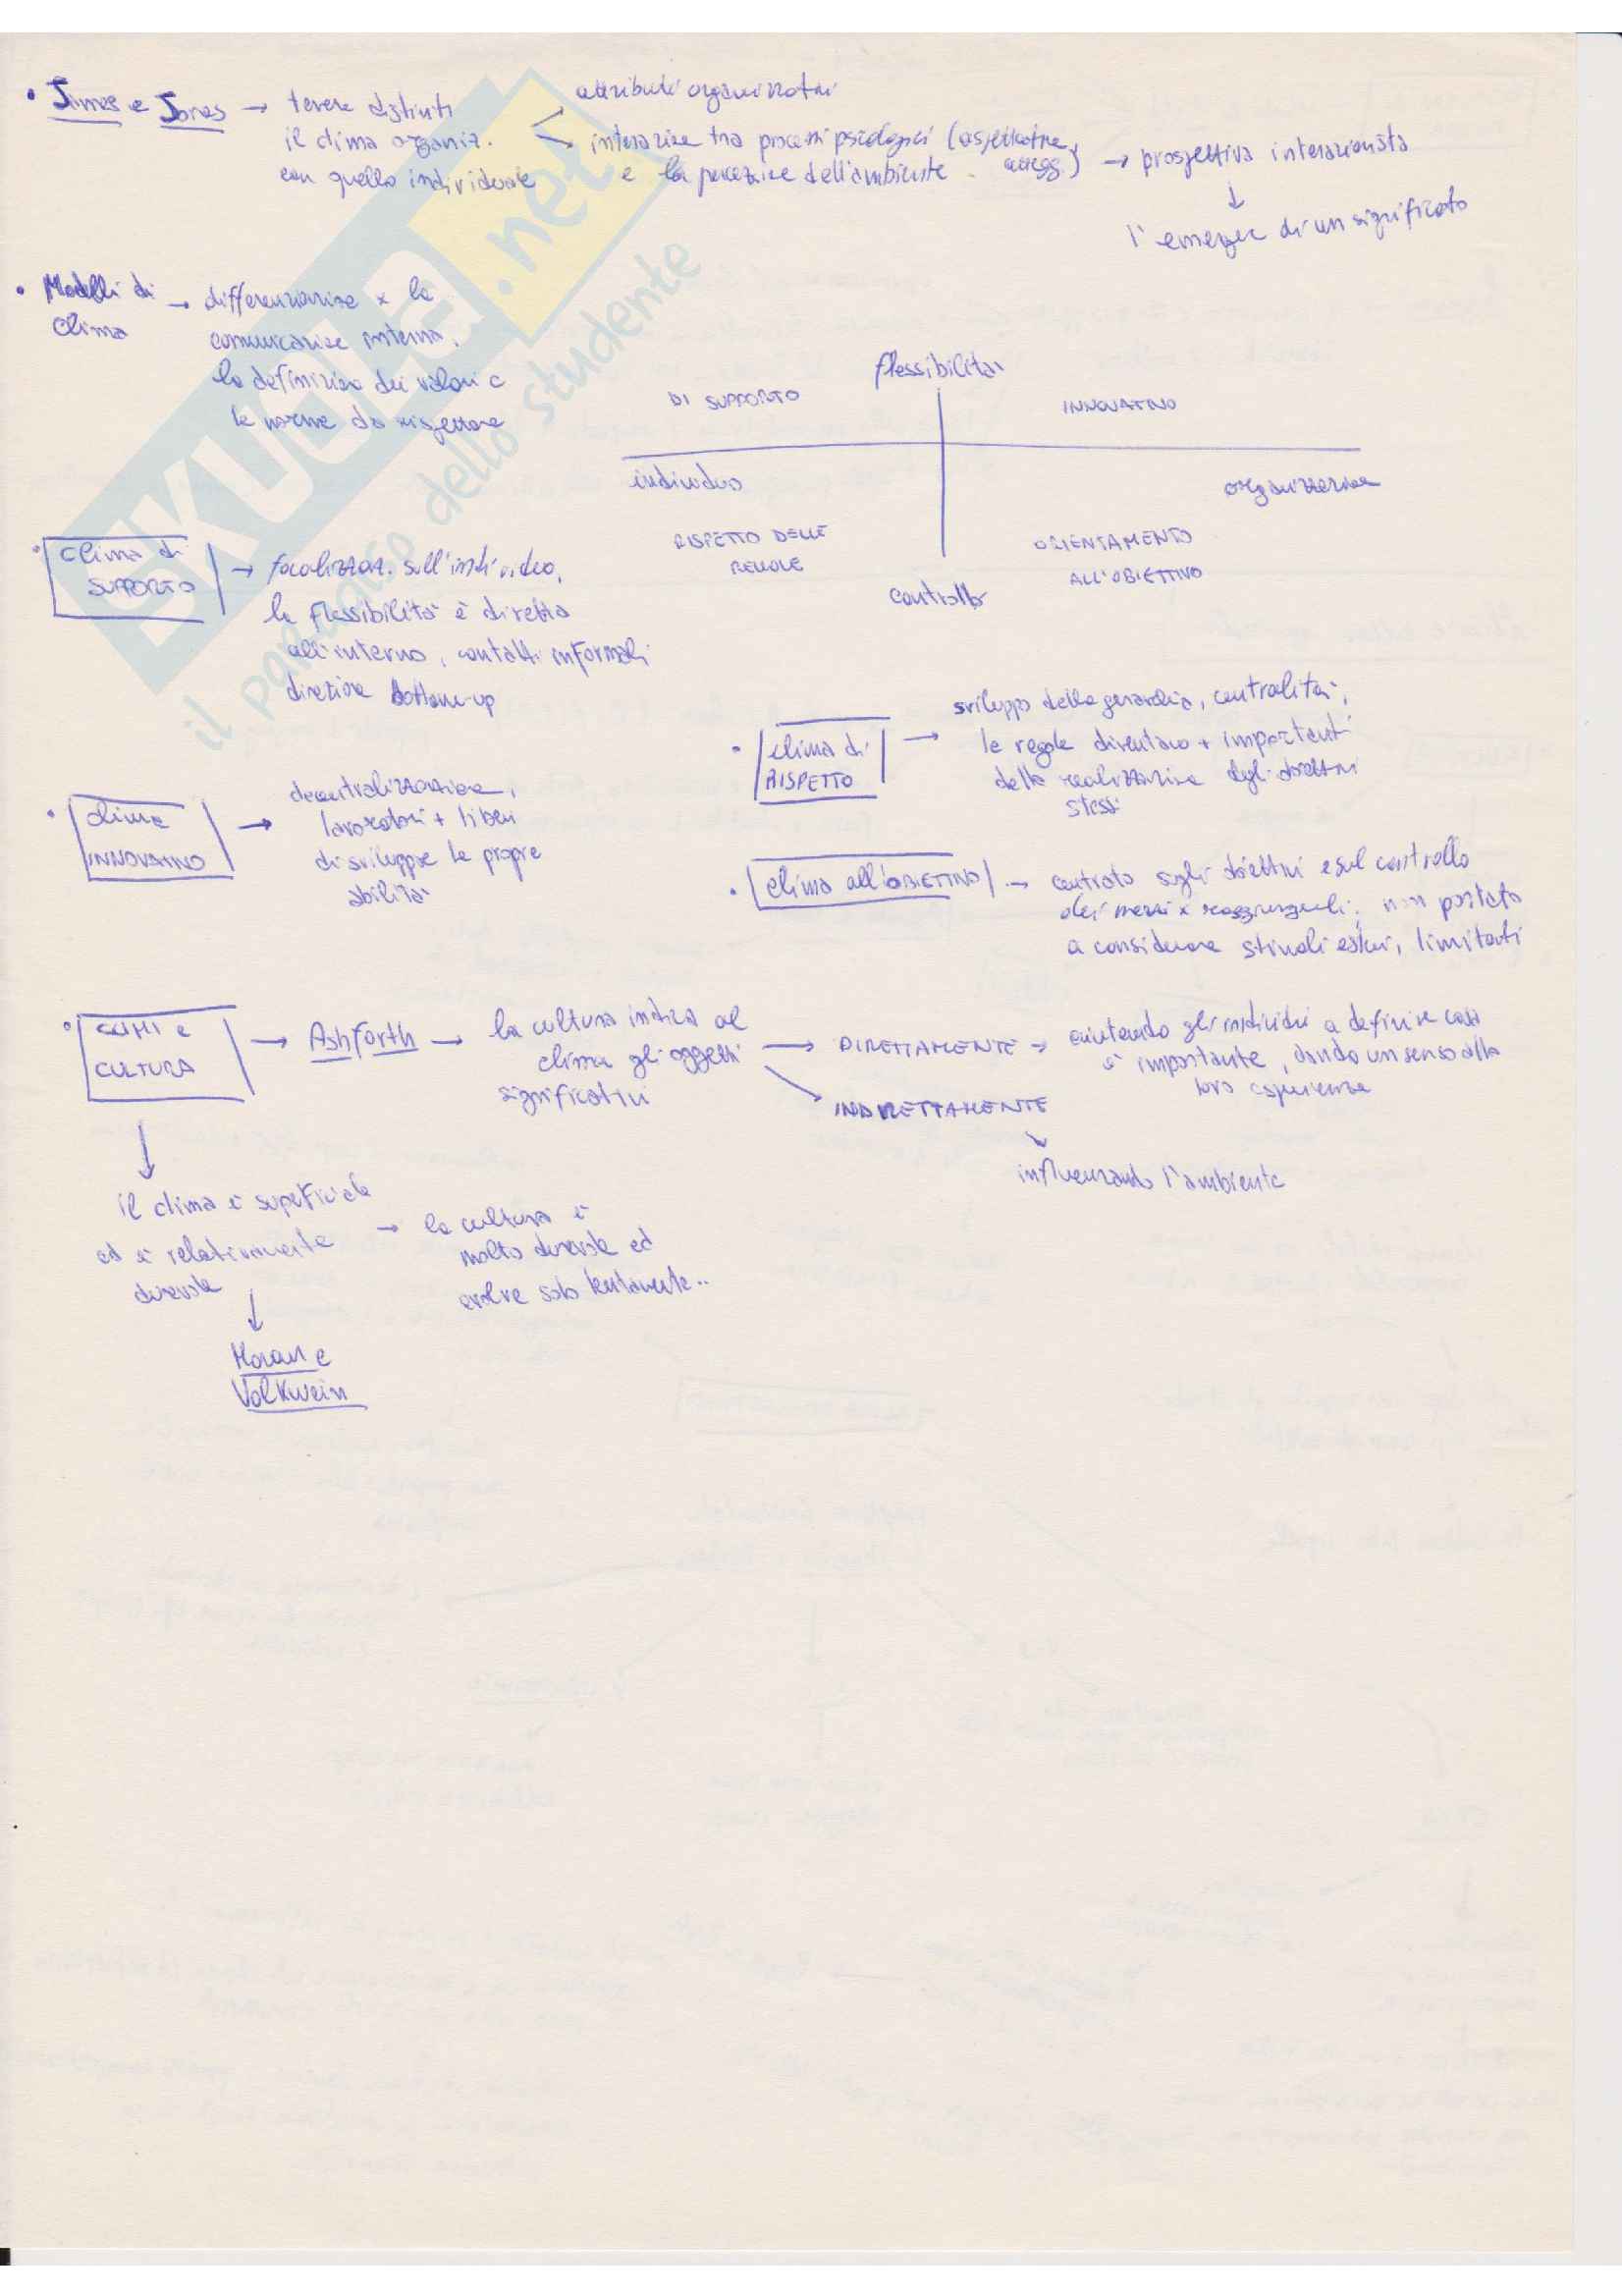 • James e Jones → tenere distinti
il clima organiz.
con quello individuale
attributi organizzativi
interazione tra processi psicologici (aspettative,
e la percezione dell'ambiente. attegg.)
→ prospettiva interazionista
↓
l'emergere di un significato
• Modelli di → differenziazione x la
clima
comunicazione interna,
la definizione dei valori e
le norme da rispettare
flessibilità
DI SUPPORTO
INNOVATIVO
individuo
organizzazione
RISPETTO DELLE
REGOLE
ORIENTAMENTO
ALL'OBIETTIVO
controllo
• clima di
SUPPORTO
→ focalizzaz. sull'individuo,
la flessibilità è diretta
all'interno, contatti informali
direzione bottom-up
• clima di
RISPETTO
→ sviluppo della gerarchia, centralità,
le regole diventano + importanti
della realizzazione degli obiettivi
stessi
• clima
INNOVATIVO
→ decentralizzazione,
lavoratori + liberi
di sviluppare le proprie
abilità
• clima all'OBIETTIVO → centrato sugli obiettivi e sul controllo
dei mezzi x raggiungerli; non portato
a considerare stimoli esterni, limitanti
• CLIMI e
CULTURA
→ Ashforth → la cultura indica al
clima gli oggetti
significativi
→ DIRETTAMENTE → aiutando gli individui a definire cosa
è importante, dando un senso alla
loro esperienza
INDIRETTAMENTE
influenzando l'ambiente
↓
il clima è superficiale
ed è relativamente
durevole
→ la cultura è
molto durevole ed
evolve solo lentamente..
↓
Moran e
Volkwein
SKUOLA.net
il paradiso dello studente